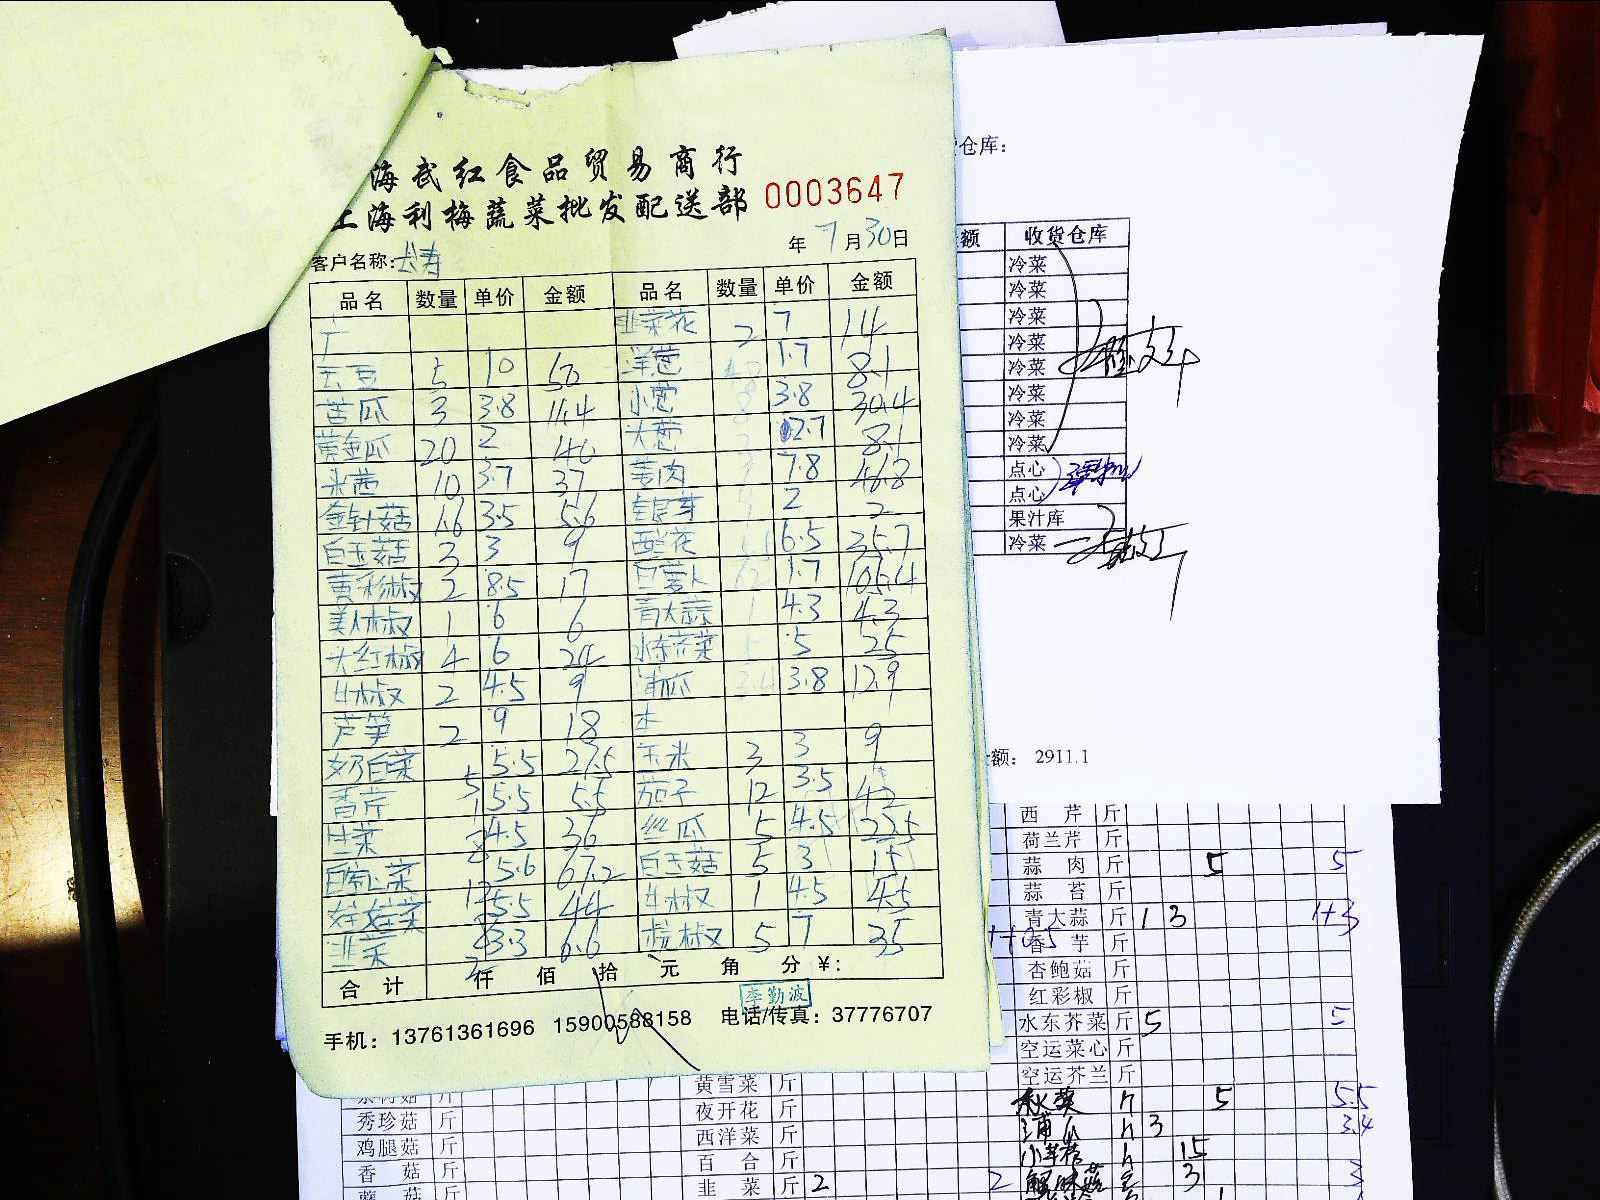 海武红食品贸易商行
上海利梅蔬菜批发配送部 0003647
年 7 月 30 日
客户名称: 长寿
品名 数量 单价 金额 品名 数量 单价 金额
韭菜花 2 7 14
云豆 5 10 50 洋葱 1.7 8.1
苦瓜 3 3.8 11.4 小葱 8 3.8 30.4
黄金瓜 20 2 40 大葱 3 2.7 8.1
米茜 10 3.7 37 姜肉 7.8 46.8
金针菇 1.6 3.5 5.6 银芽 1 2 2
白玉菇 3 3 9 西兰花 6.5 35.7
黄彩椒 2 8.5 17 白萝卜 62 1.7 105.4
美人椒 1 6 6 青大蒜 1 4.3 4.3
大红椒 4 6 24 水东芥菜 5 5 25
牛椒 2 4.5 9 浦瓜 3.4 3.8 12.9
芦笋 2 9 18 本
奶白菜 5 5.5 27.5 玉米 3 3 9
香芹 1 5.5 5.5 茄子 12 3.5 42
生菜 8 4.5 36 丝瓜 5 4.5 22.5
12 5.6 67.2 白玉菇 5 3 15
娃娃菜 8 5.5 44 牛椒 1 4.5 4.5
韭菜 2 3.3 6.6 杭椒 5 7 35
合计 仟 佰 拾 元 角 分 ¥:
李勤波
手机: 13761361696 15900588158 电话/传真: 37776707
仓库:
额 收货仓库
冷菜
冷菜
冷菜
冷菜
冷菜
冷菜
冷菜
冷菜
点心
点心
果汁库
冷菜
额: 2911.1
西芹 斤
荷兰芹 斤
蒜肉 斤 5 5
蒜苔 斤
青大蒜 斤 1 3 1+3
香芋 斤
杏鲍菇 斤
红彩椒 斤
水东芥菜 斤 5 5
空运菜心 斤
空运芥兰 斤
秋葵 5 5.5
浦瓜 3 3.4
15
3 3
秀珍菇 斤
鸡腿菇 斤
香菇 斤
蘑菇 斤
黄雪菜 斤
夜开花 斤
西洋菜 斤
百合 斤
韭菜 斤 2 2